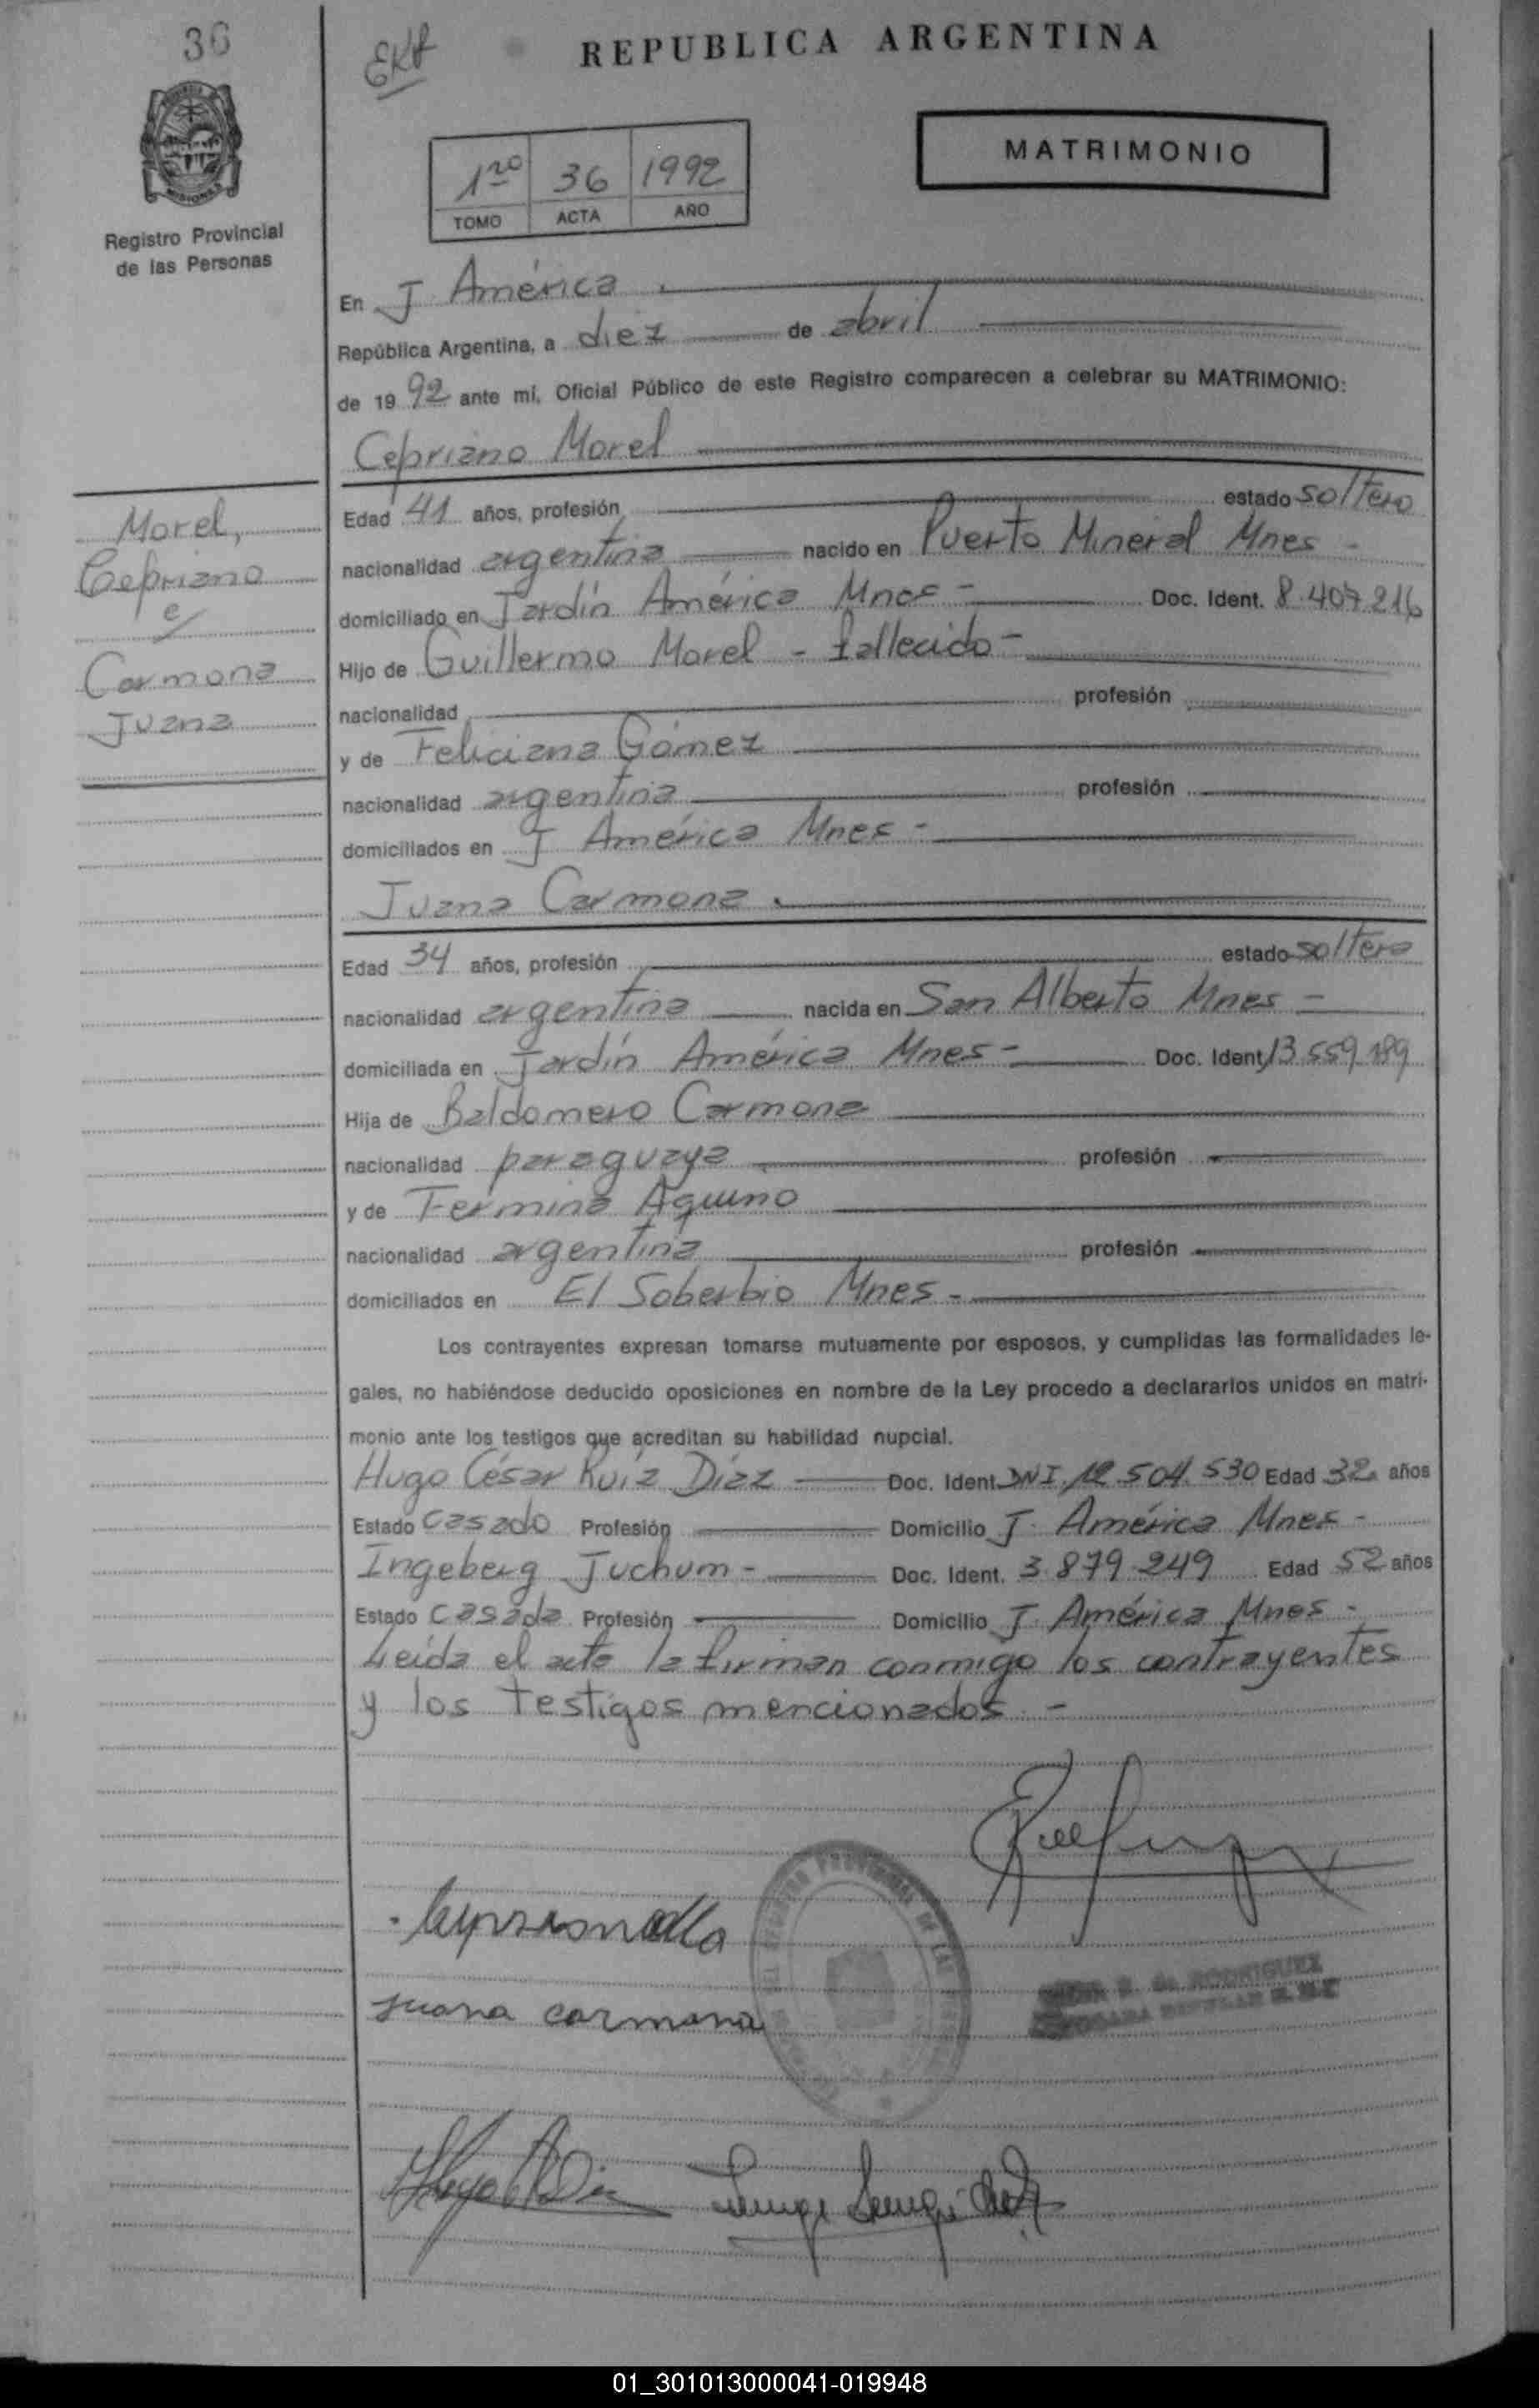 36
EKA
REPUBLICA ARGENTINA
MISIONES
Registro Provincial
de las Personas
1ro 36 1992
TOMO ACTA AÑO
MATRIMONIO
En J. América
República Argentina, a diez de abril
de 19 92 ante mí, Oficial Público de este Registro comparecen a celebrar su MATRIMONIO:
Cepriano Morel
Morel,
Cepriano
c/
Carmona
Juana
Edad 41 años, profesión estado soltero
nacionalidad argentina nacido en Puerto Mineral Mnes -
domiciliado en Jardín América Mnes - Doc. Ident. 8.407.216
Hijo de Guillermo Morel - fallecido -
nacionalidad profesión
y de Feliciana Gómez
nacionalidad argentina profesión
domiciliados en J América Mnes -
Juana Carmona
Edad 34 años, profesión estado soltera
nacionalidad argentina nacida en San Alberto Mnes -
domiciliada en Jardín América Mnes - Doc. Ident. 13.559.189
Hija de Baldomero Carmona
nacionalidad paraguaya profesión
y de Fermina Aquino
nacionalidad argentina profesión
domiciliados en El Soberbio Mnes -
Los contrayentes expresan tomarse mutuamente por esposos, y cumplidas las formalidades le-
gales, no habiéndose deducido oposiciones en nombre de la Ley procedo a declararlos unidos en matri-
monio ante los testigos que acreditan su habilidad nupcial.
Hugo César Ruíz Díaz Doc. Ident. DNI. 12.504.530 Edad 32 años
Estado casado Profesión Domicilio J. América Mnes -
Ingeberg Juchum - Doc. Ident. 3.879.249 Edad 52 años
Estado casada Profesión Domicilio J. América Mnes -
Leída el acta la firman conmigo los contrayentes
y los testigos mencionados. -
juana carmona
RODRIGUEZ
01_301013000041-019948